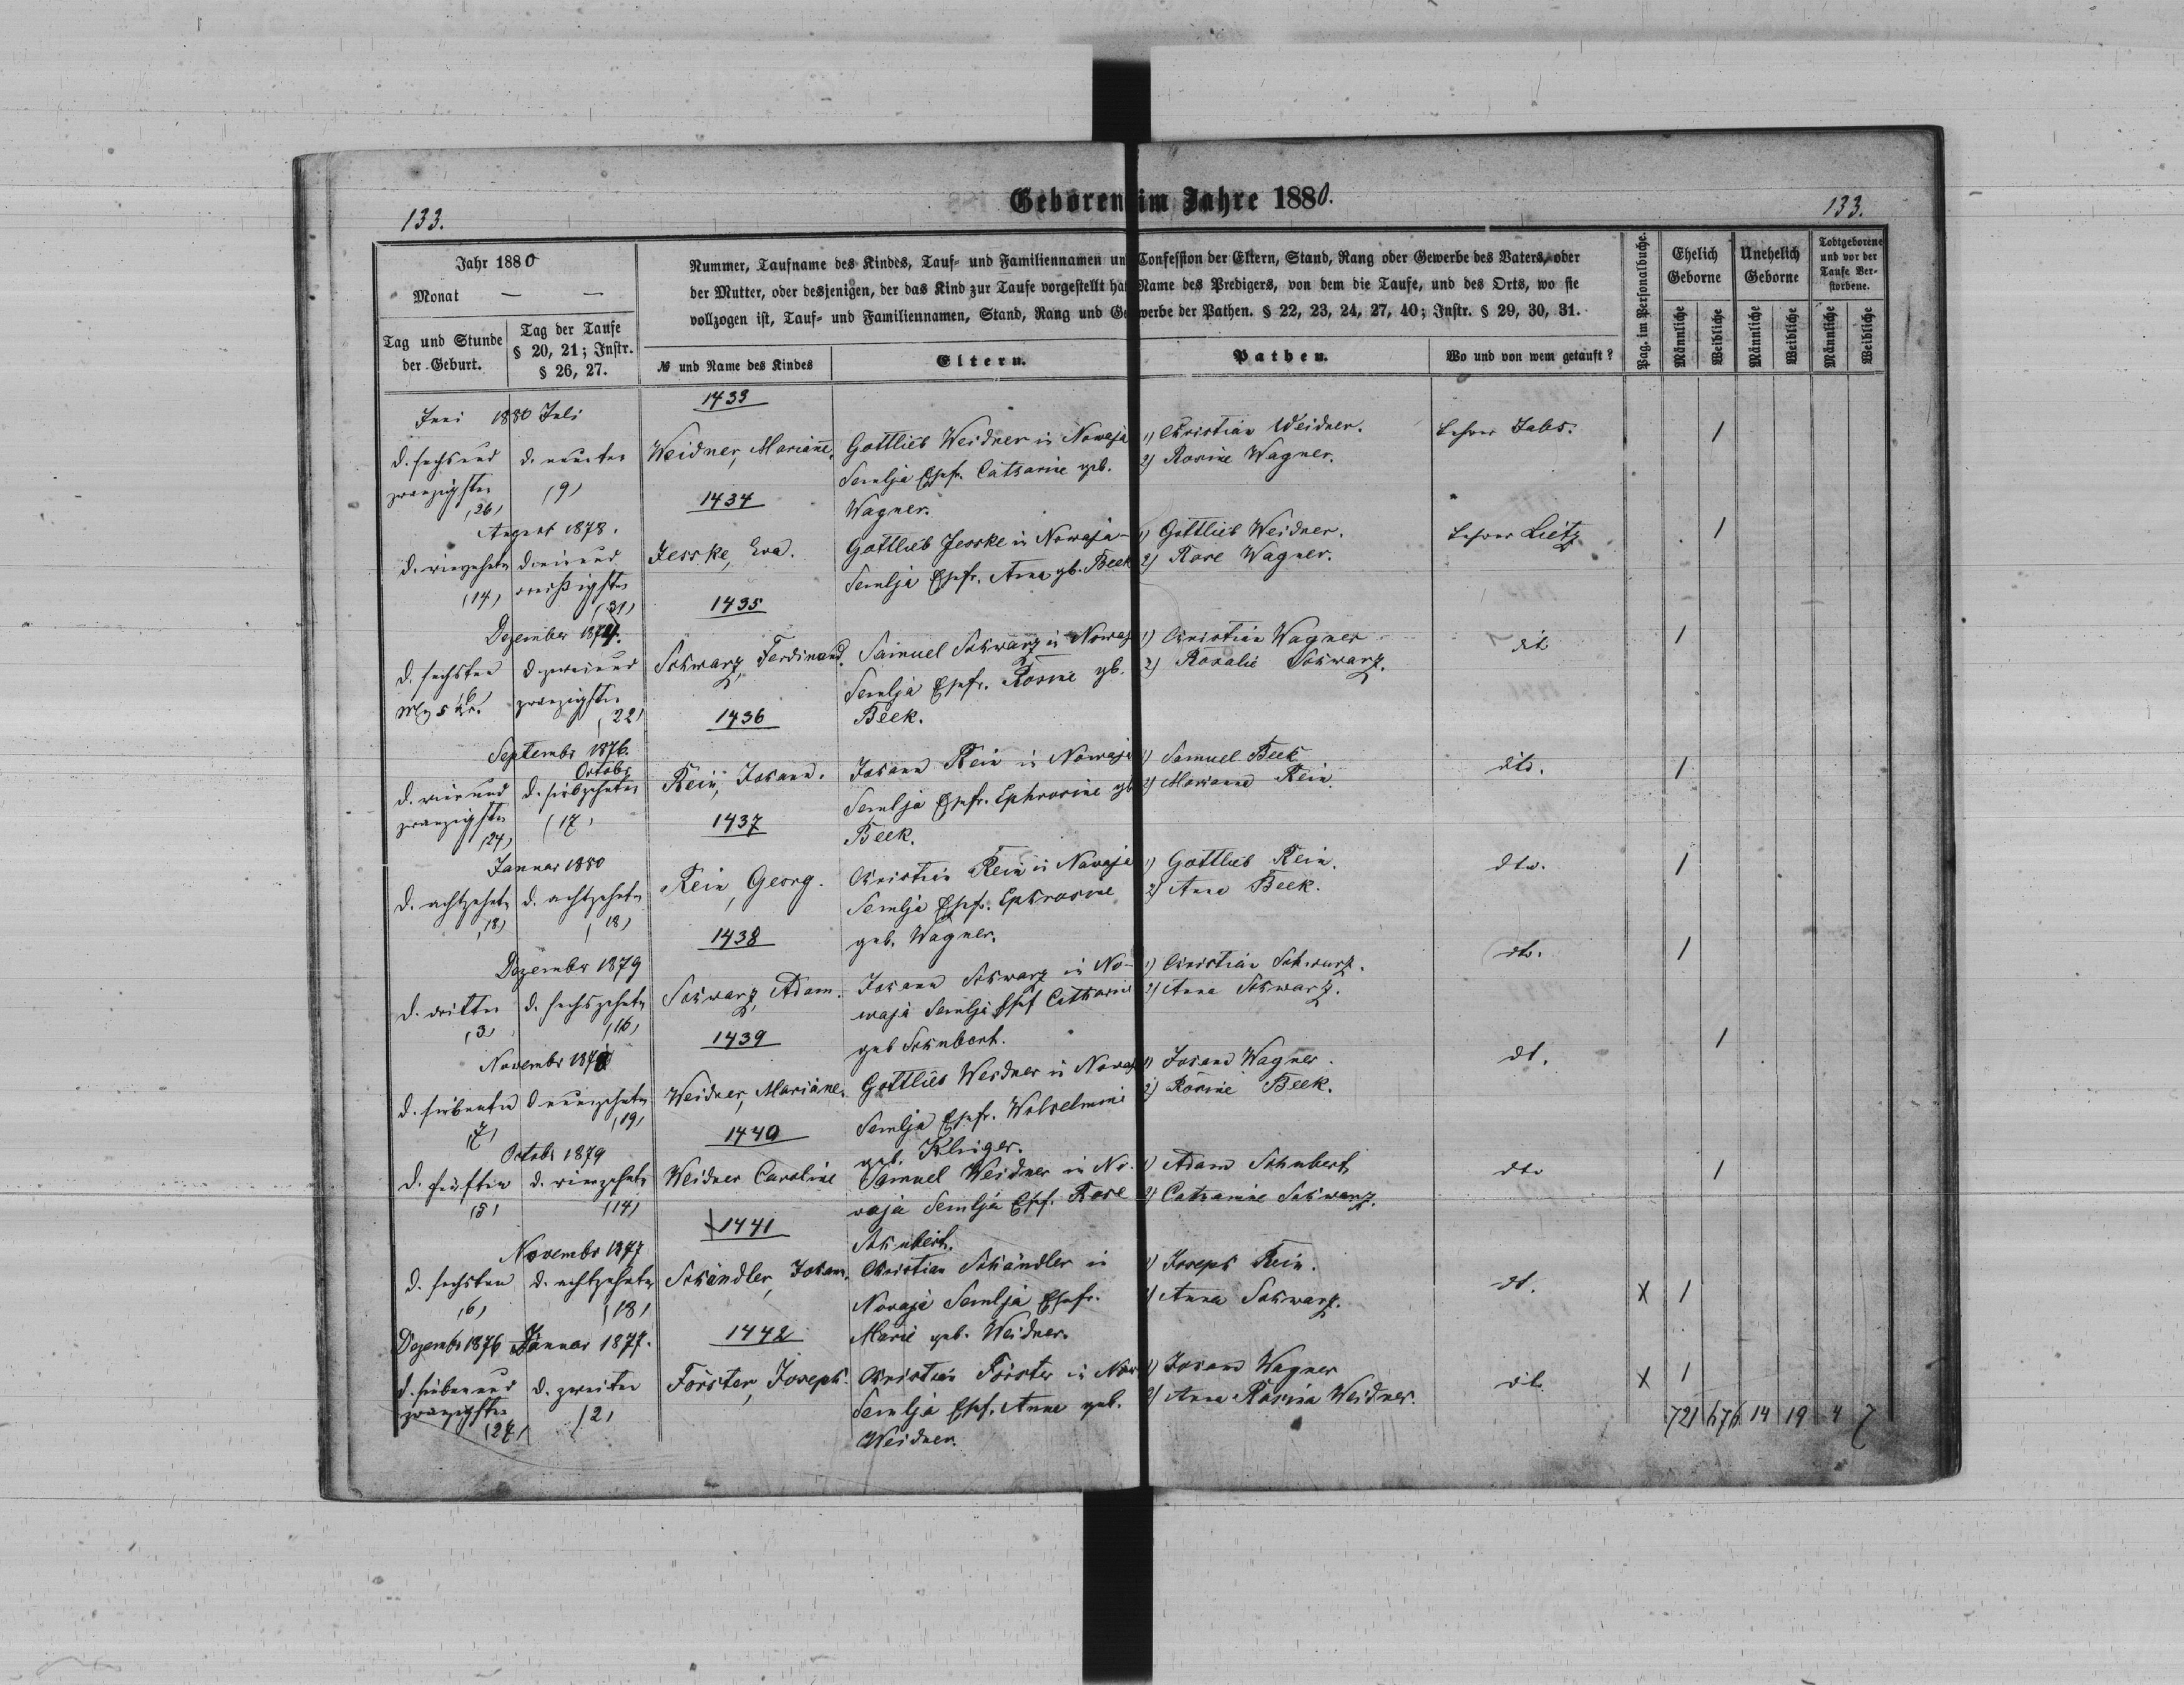 Geboren im Jahre 1880.
133.
133.
Jahr 1880
Monat — —
Tag und Stunde der Geburt.
Tag der Taufe § 20, 21; Instr. § 26, 27.
Nummer, Taufname des Kindes, Tauf- und Familiennamen und Confession der Eltern, Stand, Rang oder Gewerbe des Vaters, oder
der Mutter, oder desjenigen, der das Kind zur Taufe vorgestellt hat Name des Predigers, von dem die Taufe, und des Orts, wo sie
vollzogen ist, Tauf- und Familiennamen, Stand, Rang und Gewerbe der Pathen. § 22, 23, 24, 27, 40; Instr. § 29, 30, 31.
№ und Name des Kindes
Eltern.
Pathen.
Wo und von wem getauft?
Pag. im Personalbuche.
Ehelich Geborne
Unehelich Geborne
Todtgeborene und vor der Taufe Verstorbene.
Männliche
Weibliche
Männliche
Weibliche
Männliche
Weibliche
1433
Juni 1880 Juli
d. sechs und d. neunten Weidner, Mariane, Gottlieb Weidner in Nowaja 1) Christian Weidner. Lehrer Jabs. 1
zwanzigsten (9) Semlja Ehefr. Catharine geb. 2) Rosine Wagner.
(26) 1434 Wagner.
August 1878.
d. vierzehnten d. ein und Jesske, Eva. Gottlieb Jesske in Nowaja- 1) Gottlieb Weidner. Lehrer Lietz 1
(14) dreißigsten Semlja Ehefr. Anna gb. Beek 2) Rose Wagner.
(31) 1435
Dezember 1874.
d. sechsten d. zwei und Schwarz, Ferdinand. Samuel Schwarz in Nowaj 1) Christian Wagner dit 1
(6) zwanzigsten Semlja Ehefr. Rosine gb. 2) Rosalie Schwarz.
(22) 1436 Beek.
Septembr 1876.
Octobr
d. vier und d. siebzehnten Rein, Johann. Johann Rein in Nowaja 1) Samuel Beek dto. 1
zwanzigsten (17) Semlja Ehefr. Ephrosine gb 2) Marianna Rein.
(24) 1437 Beek.
Januar 1880
d. achtzehnten d. achtzehnten Rein, Georg. Christian Rein in Nowaja 1) Gottlieb Rein. dto. 1
(18) (18) Semlja Ehefr. Ephrosine 2) Anna Beek.
1438 geb. Wagner.
Dezember 1879
d. dritten d. sechszehnten Schwarz, Adam. Johann Schwarz in No- 1) Christian Schwarz. dto. 1
(3) (16) waja Semlja Ehef Catharine 2) Anna Schwarz.
1439 geb Schubert.
Novembr
d. siebenten d. neunzehnten Weidner, Mariane. Gottlieb Weidner in Nowaj 1) Johann Wagner. dt. 1
(7) (19) Semlja Ehefr. Wilhelmine 2) Rosine Beek.
1440 geb. Klinger.
Octobr 1879
d. fünften d. vierzehnten Weidner Caroline Samuel Weidner in No- 1) Adam Schubert dto 1
(5) (14) vaja Semlja Ehf. Rose 2) Catharine Schwarz.
1441 Schubert.
Novembr 1877
d. sechsten d. achtzehnten Schändler, Johann. Christian Schändler in 1) Joseph Rein. dt. X 1
(6) (18) Novaja Semlja Ehefr. 2) Anna Schwarz.
Dezembr 1876 Januar 1877. 1442 Marie geb. Weidner.
d. sieben und d. zweiten Förster, Joseph. Christian Förster in Now 1) Johann Wagner dit. X 1
zwanzigsten (2) Semlja Ehf. Anna geb. 2) Anna Rosina Weidner.
(27) Weidner.
721 676 14 19 4 7